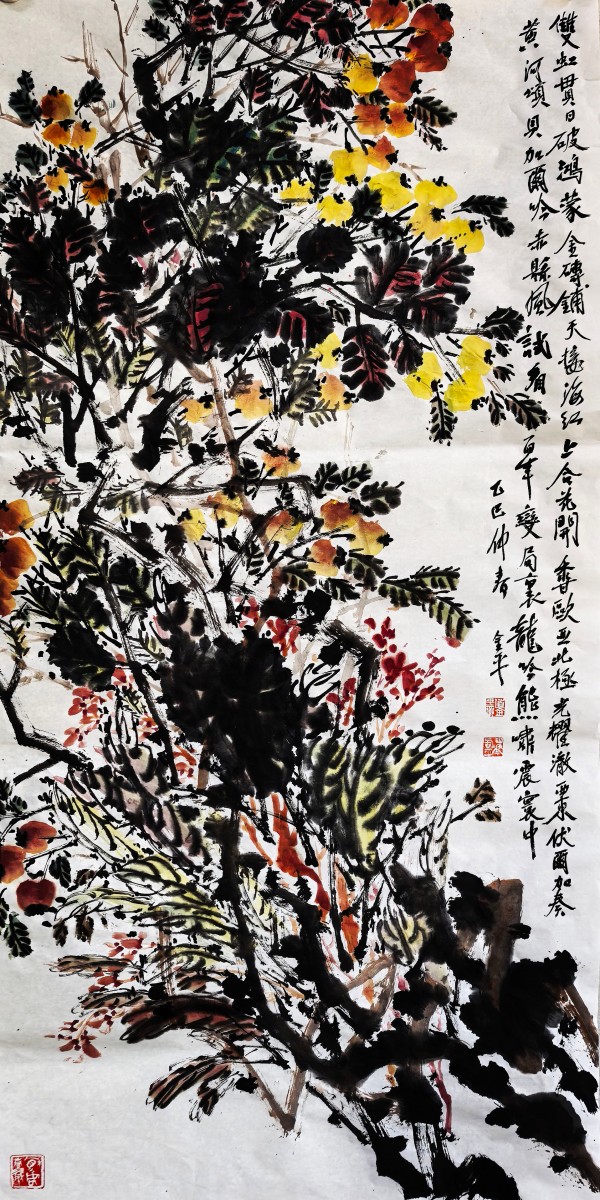 雙虹貫日破鴻蒙金磚鋪天接海紅上合花開香歐亞北極光耀澈粟伏爾加奏
黃河頌貝加爾吟赤縣風試看百年變局裏龍吟熊嘯震寰中
乙巳仲春
金平